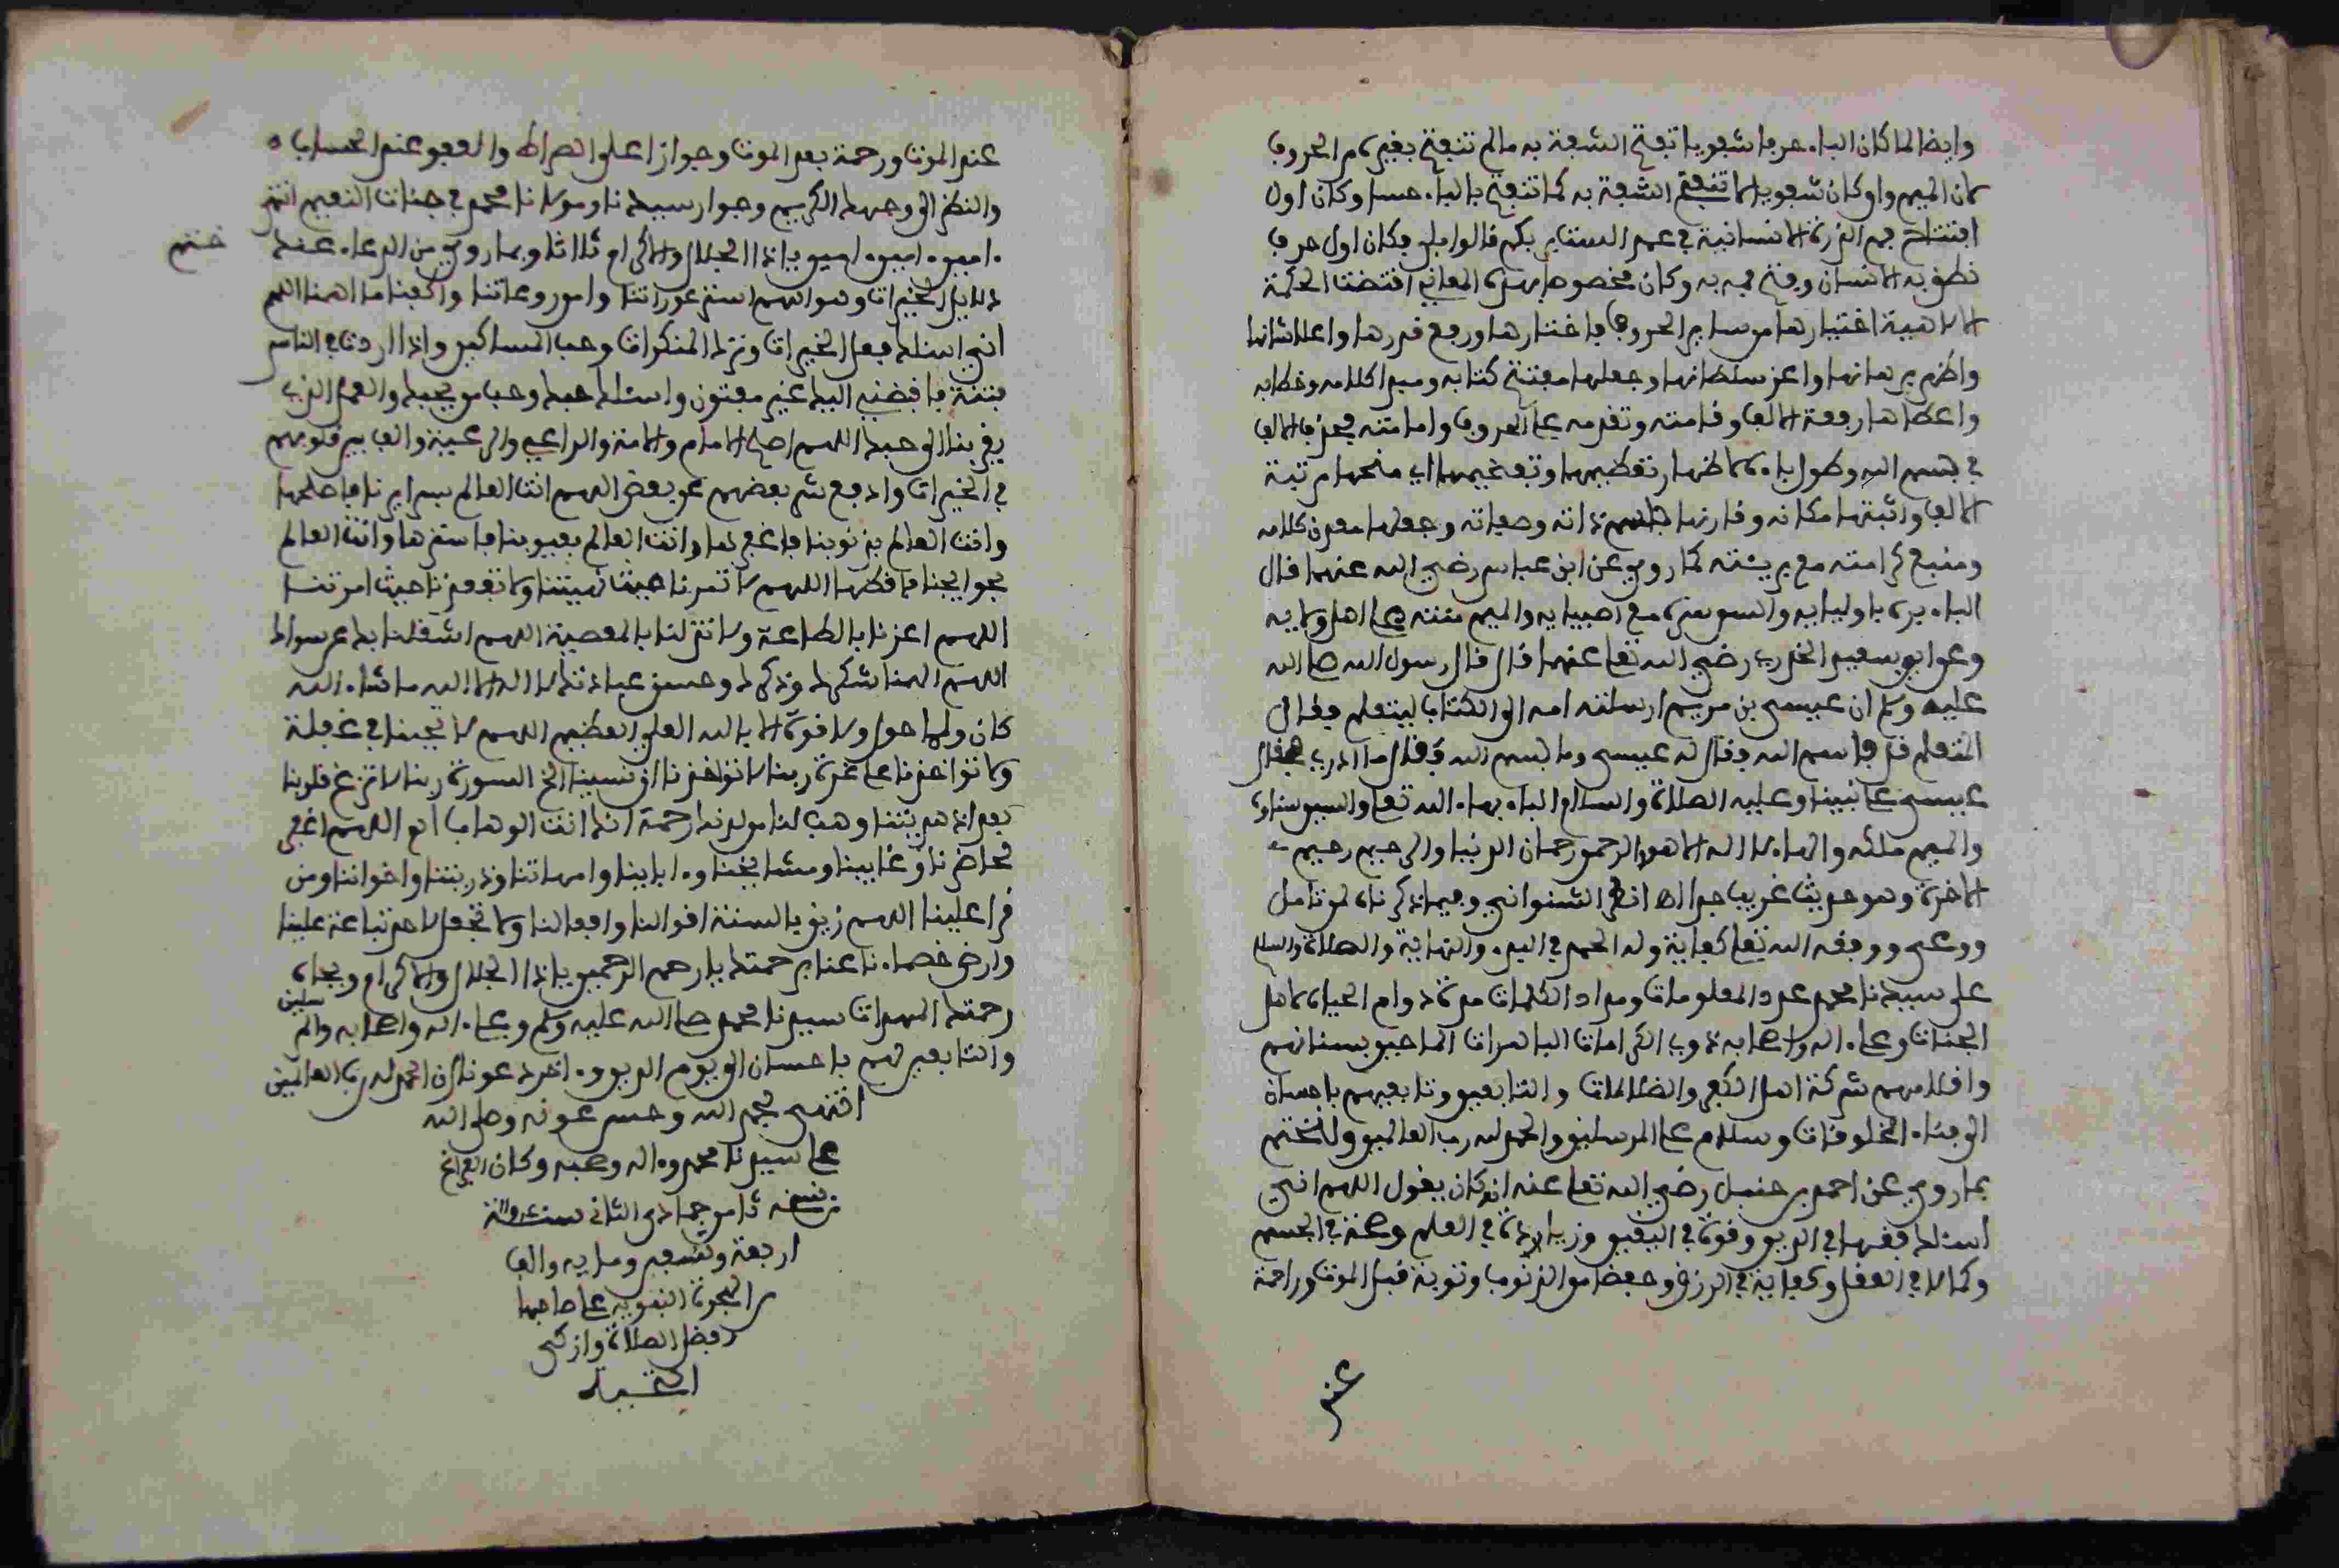 وايضا لما كان الباء حرفا شفويا تنفتح الشفة به مالم تنفتح بغيره من الحروف
كان الميم والواو كان شفويا لا تنفتح الشفة به كما تنفتح بالباء حسا وكان اول
افتتاح فم الذرة الانسانية في عهد الست بربكم قالوا بلى فكان اول حرف
نطق به الانسان وفتح فمه به وكان مخصوصا بهذه المعاني اقتضت الحكمة
الالاهية اختيارها من ساير الحروف فاختارها ورفع قدرها واعلا شانها
واظهر برهانها واعز سلطانها وجعلها مفتتح كتابه ومبدا كلامه وخطابه
واعطاها رفعة الالف وقامته وتقدمه على الحروف وامامته فحذف الالف
في بسم الله وطول باءه لاظهار تعظيمها وتفخيمها اي منحها مرتبة
الالف واثبتها مكانه وقارنها باسم ذاته وصفاته وجعلها معدن كلامه
ومنبع كرامته مع بريئته كما روي عن ابن عباس رضي الله عنهما قال
الباء بره باوليايه والسين سره مع اصفيايه والميم منته على اهل ولايه
وعن ابو سعيد الخدري رضي الله تعلى عنهما قال قال رسول الله صلى الله
عليه وسلم ان عيسى بن مريم ارسلته امه الى الكتاب ليتعلم فقال
المتعلم قل باسم الله فقال له عيسى وما بسم الله فقال ما ادري فقال
عيسى على نبينا وعليه الصلاة والسلام الباء بهاء الله تعلى والسين سناءه
والميم ملكه والله لا اله الا هو والرحمن رحمان الدنيا والرحيم رحيم
الاخرة وهو حديث غريب جدا اه انظر الشنواني وفيما ذكرناه لمن تامل
ووعى ووفقه الله تعلى كفاية وله الحمد في البدء والنهاية والصلاة والسلام
على سيدنا محمد عدد المعلومات ومداد الكلمات مدة دوام الحياة لاهل
الجنات وعلى ءاله واصحابه ذوي الكرامات الباهرات الماحين بسنانهم
واقلامهم شركة اهل الكفر والضلالات والتابعين وتابعيهم باحسان
الى فناء المخلوقات وسلام على المرسلين والحمد لله رب العالمين ولنختم
بما روي عن احمد بن حنبل رضي الله تعلى عنه انه كان يقول اللهم اني
اسئلك فقها في الدين وقوة في اليقين وزيادة في العلم وصحة في الجسم
وكمالا في العقل وكفاية في الرزق وحفظا من الذنوب وتوبة قبل الموت وراحة
عند
عند الموت ورحمة بعد الموت وجوازا على الصراط والعفو عند الحساب
والنظر الى وجهك الكريم وجوار سيدنا ومولانا محمد في جنات النعيم انتهى
ءامين ءامين ءامين ياذا الجلال والاكرام ثلاثا وبما روي من الدعاء عند
ختم
دلايل الخيرات وهو اللهم استر عوراتنا وامن روعاتنا واكفنا ما اهمنا اللهم
اني اسئلك فعل الخيرات وترك المنكرات وحب المساكين واذا اردت في الناس
بفتنة فاقبضني اليك غير مفتون واسئلك حبك وحب من يحبك والعمل الذي
يقربنا الى حبك اللهم اصلح الامام والامة والراعي والرعية والف بين قلوبهم
في الخيرات وادفع شر بعضهم عن بعض اللهم انت العالم بسرايرنا فاصلحها
وانت العالم بذنوبنا فاغفرها وانت العالم بعيوبنا فاسترها وانت العالم
بحوايجنا فاقضها اللهم لا ترنا حيث نهيتنا ولا تفقدنا حيث امرتنا
اللهم اعزنا بالطاعة ولا تذلنا بالمعصية اللهم اشغلنا بك عن سواك
اللهم الهمنا شكرك وذكرك وحسن عبادتك لا اله الا الله ما شاء الله
كان ولا حول ولا قوة الا بالله العلي العظيم اللهم لا تحينا في غفلة
ولا تؤاخذنا على غرة ربنا لا تؤاخذنا ان نسينا الخ السورة ربنا لا تزغ قلوبنا
بعد اذ هديتنا وهب لنا من لدنك رحمة انك انت الوهاب اه اللهم اغفر
لحاضرنا وغايبنا ومشايخنا وءابايينا وامهاتنا وذريتنا واخواننا ومن
قرا علينا اللهم زين بالسنة اقوالنا وافعالنا ولا تجعل لاحد تباعة علينا
وارض خصماءنا عنا برحمتك يا ارحم الرحمين ياذا الجلال والاكرام وبجاه
رحمتك المهداة سيدنا محمد صلى الله عليه وسلم وعلى ءاله واصحابه والمرسلين
والتابعين لهم باحسان الى يوم الدين وءاخر دعونا ان الحمد لله رب العالمين
انتهى بحمد الله وحسن عونه وصلى الله
على سيدنا محمد وءاله وصحبه وكان الفراغ
من نسخه ثامن جمادى الثاني سنة
اربعة وتسعين وماية والف
من الهجرة النبوية على صاحبها
افضل الصلاة وازكى
التحية